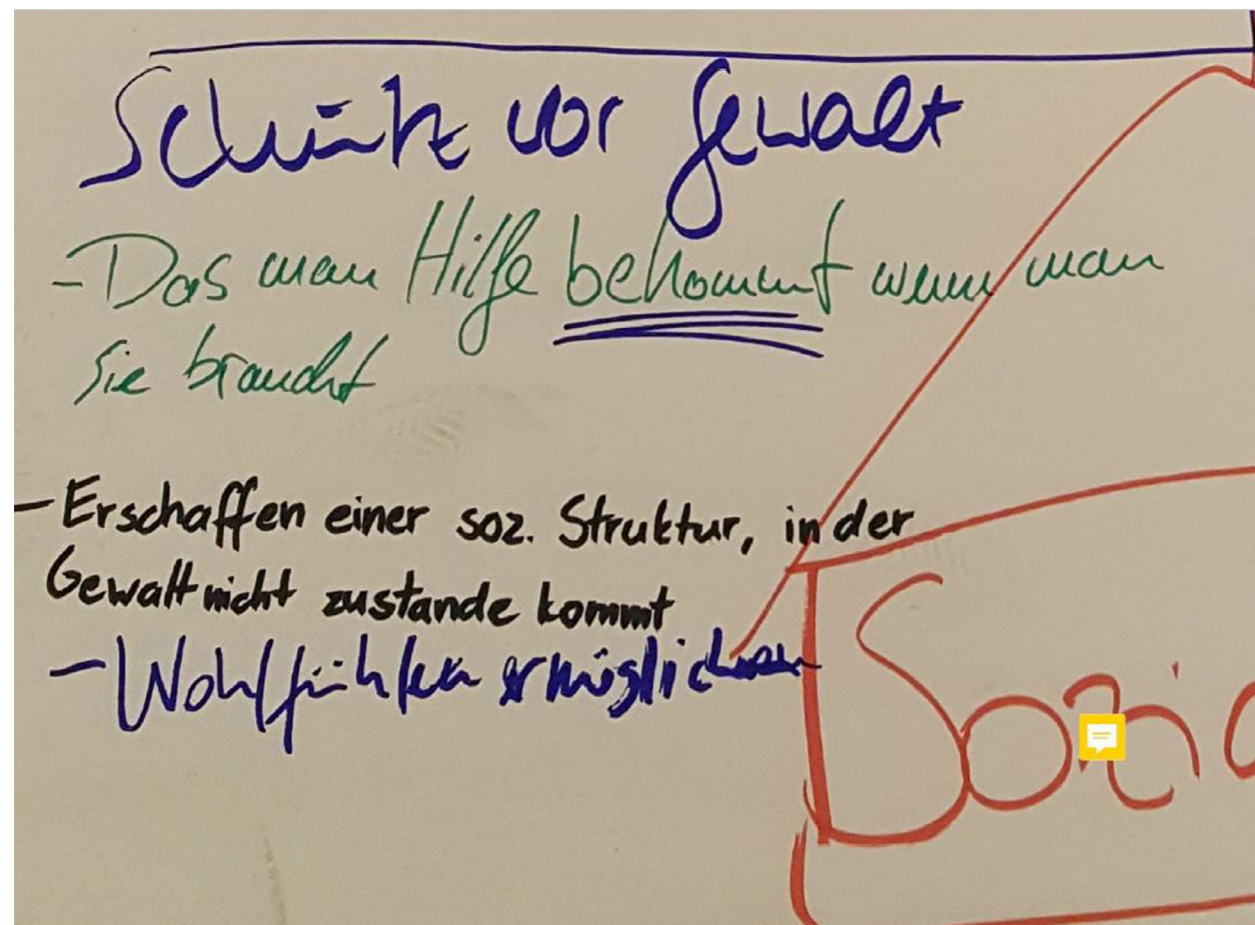 Schutz vor Gewalt
- Das man Hilfe bekommt wenn man
sie braucht
- Erschaffen einer soz. Struktur, in der
Gewalt nicht zustande kommt
- Wohlfühlen ermöglichen
Sozia